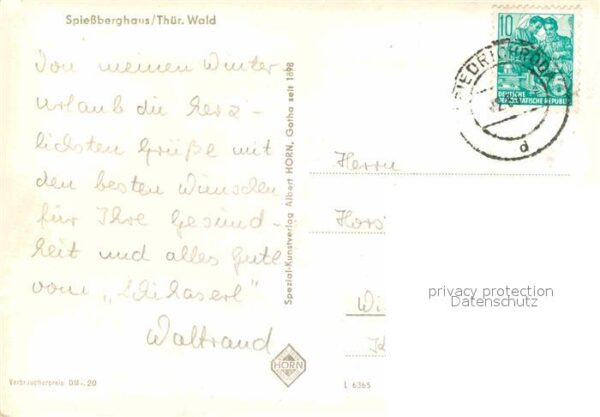 Spießberghaus/Thür. Wald
Von meinen Winter-
urlaub die herz-
lichsten Grüße mit
den besten Wünschen
für Ihre Gesund-
heit und alles Gute
vom „Skihaserl“
Waltraud
Verbraucherpreis DM -.20
Spezial-Kunstverlag Albert HORN, Gotha seit 1898
HORN
L 6365
10
DEUTSCHE
DEMOKRATISCHE REPUBLIK
d
Herrn
Hors
Wi
privacy protection
Datenschutz